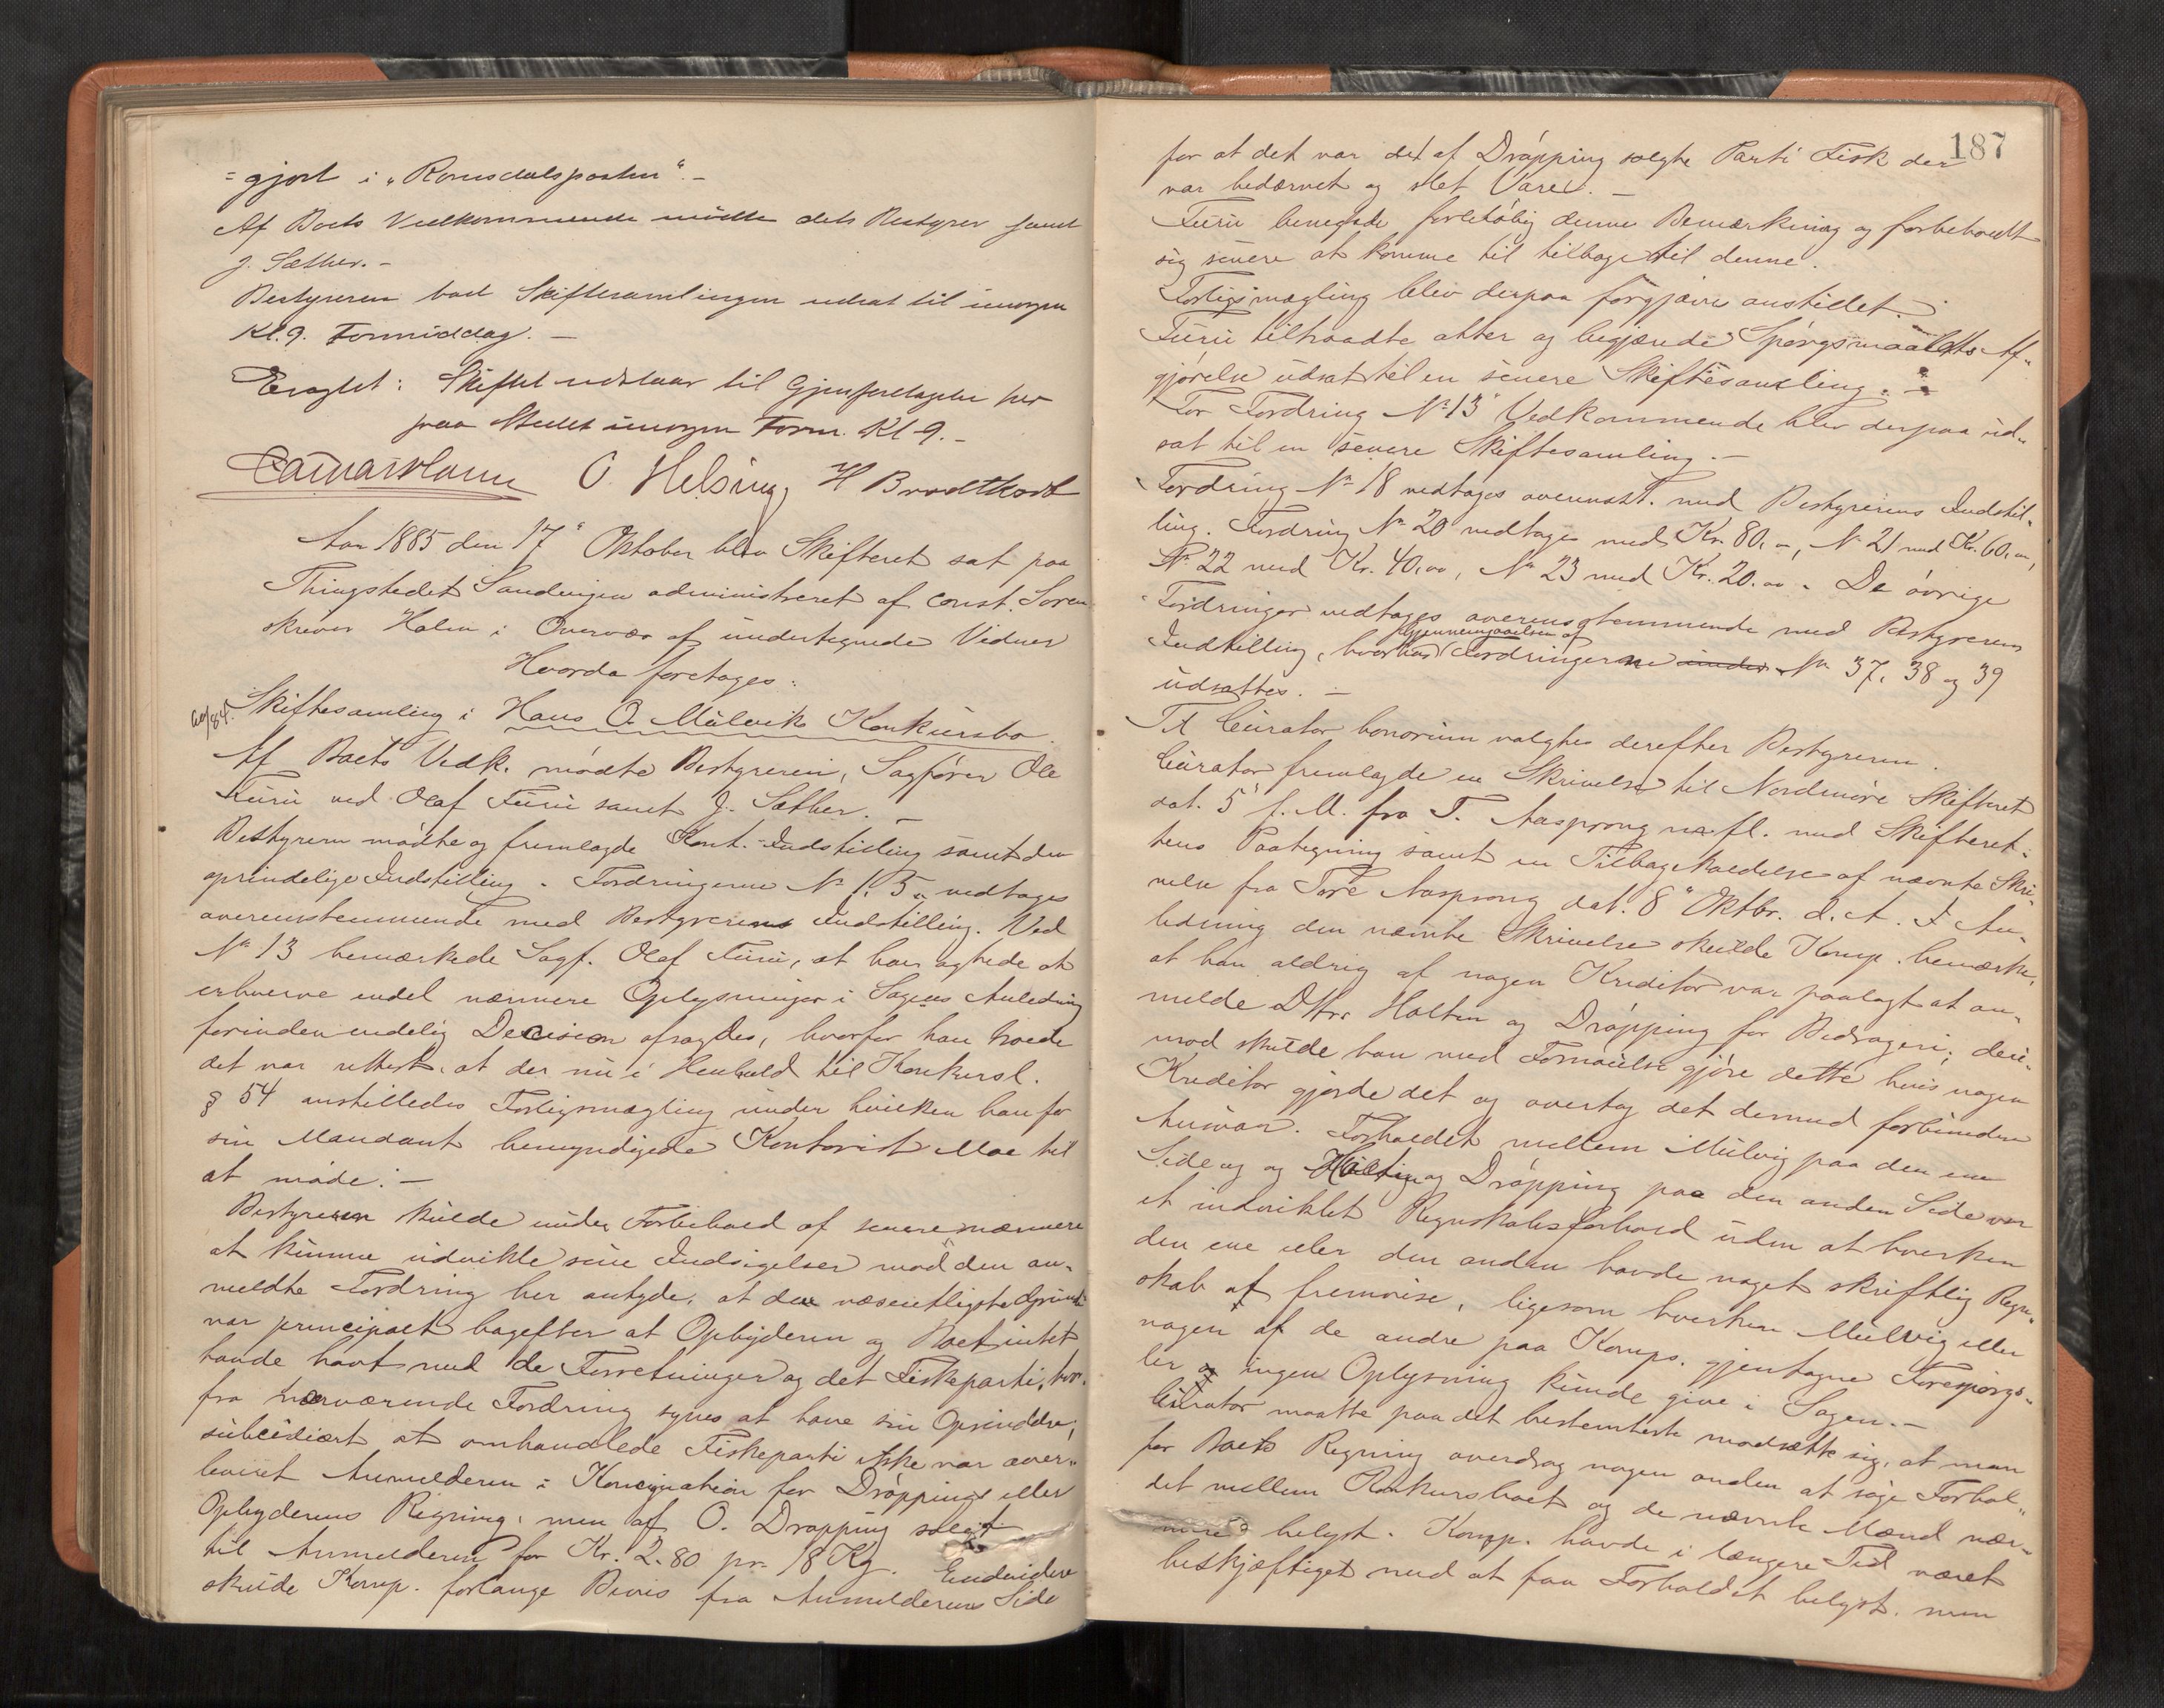 = gjort i "Romsdalsposten". -
Af Boets Vedkommende mødte dets Bestyrer samt
J. Sæther. -
Bestyreren bad Skiftesamlingen udsat til imorgen
Kl. 9. Formiddag. -
Eragtet: Skiftet udstaar til Gjenforetagelse her
paa Stedet imorgen Form. Kl 9. -
O. Helsing H Brodtkorb
Aar 1885 den 17" Oktober blev Skifteret sat paa
Thingstedet Sandvigen administreret af const. Soren-
skriver Holm i Overvær af undertegnede Vidner
Hvorda foretages:
60/84. Skiftesamling i Hans O. Mülviks Konkursbo.
Af Boets Vedk. mødte Bestyreren, Sagfører Ole
Furu ved Olaf Furu samt J. Sæther. -
Bestyreren mødte og fremlagde Kont. Indstilling samt den
oprindelige Indstilling. Fordringerne No 1, 5 vedtages
overensstemmende med Bestyrerens Indstilling. Ved
No 13 bemærkede Sagf. Olaf Furu, at han agtede at
erhverve endel nærmere Oplysninger i Sagens Anledning
forinden endelig Decision afsagdes, hvorfor han troede
det var rettest, at der nu i Henhold til Konkursl.
§ 54 anstilledes Forligsmægling under hvilken han for
sin Mandant bemyndigede Kontorist Moe til
at møde. -
Bestyreren skulde under Forbehold af senere nærmere
at kunne udvikle sine Indsigelser mod den an-
meldte Fordring her antyde, at den væsentligste Grund
var principalt bagefter at Opbyderen og Boet intet
havde havt med de Forretninger og det Fiskeparti, hvor-
fra nærværende Fordring synes at have sin Oprindelse;
subsidiært at omhandlede Fiskeparti ikke var over-
leveret Anmelderen i Konsignation for Drøppings eller
Opbyderens Regning, men af O. Drøpping solgt
til Anmelderen for Kr. 2.80 pr. 18 Kg. Endvidere
skulde Komp. forlange Bevis fra Anmelderens Side
187
for at det var det af Drøpping solgte Parti Fisk der
var bedærvet og slet Vare. -
Furu benegtede foreløbig denne Bemærkning og forbeholdt
sig senere at komme til tilbage til denne.
Forligsmægling blev derpaa forgjæves anstillet.
Furu tiltraadte atter og begjærede Spørgsmaalets Af-
gjørelse udsat til en senere Skiftesamling. -
For Fordring No 13" Vedkommende blev derpaa ud-
sat til en senere Skiftesamling. -
Fordring No 18 vedtages overensst. med Bestyrerens Indstil-
ling. Fordring No 20 vedtages med Kr. 80. -, No 21 med Kr. 60.00,
No 22 med Kr. 40.00, No 23 med Kr. 20.00. De øvrige
Fordringer vedtages overensstemmende med Bestyrerens
Gjennemgaaelsen af
Indstilling, hvorhos Fordringerne under No 37, 38 og 39
udsattes. -
Til Curator bonorum valgtes derefter Bestyreren.
Curator fremlagde en Skrivelse til Nordmøre Skifteret
dat. 5" f. M. fra T. Aasprong m. fl. med Skifteret-
tens Paategning samt en Tilbagekaldelse af nævnte Skri-
velse fra Tore Aasprong dat. 8" Oktbr. d. A. I An-
ledning den nævnte Skrivelse skulde Komp. bemærke,
at han aldrig af nogen Kreditor var paalagt at an-
melde DHrr. Holten og Drøpping for Bedrageri; deri-
mod skulde han med Fornøielse gjøre dette hvis nogen
Kreditor gjorde det og overtog det dermed forbundne
Ansvar. Forholdet mellem Mülvig paa den ene
Side og og Holten og Drøpping paa den anden Side var
et indviklet Regnskabsforhold uden at hverken
den ene eller den anden havde noget skriftlig Regn-
skab at fremvise, ligesom hverken Mülvig eller
nogen af de andre paa Komps. gjentagne Forespørgs-
ler og ingen Oplysning kunde give i Sagen. -
Curator maatte paa det bestemteste modsætte sig, at man
for Boets Regning overdrog nogen anden at søge Forhol-
det mellem Konkursboet og de nævnte Mænd nær-
mere belyst. Komp. havde i længere Tid været
beskjæftiget med at faa Forholdet belyst, men